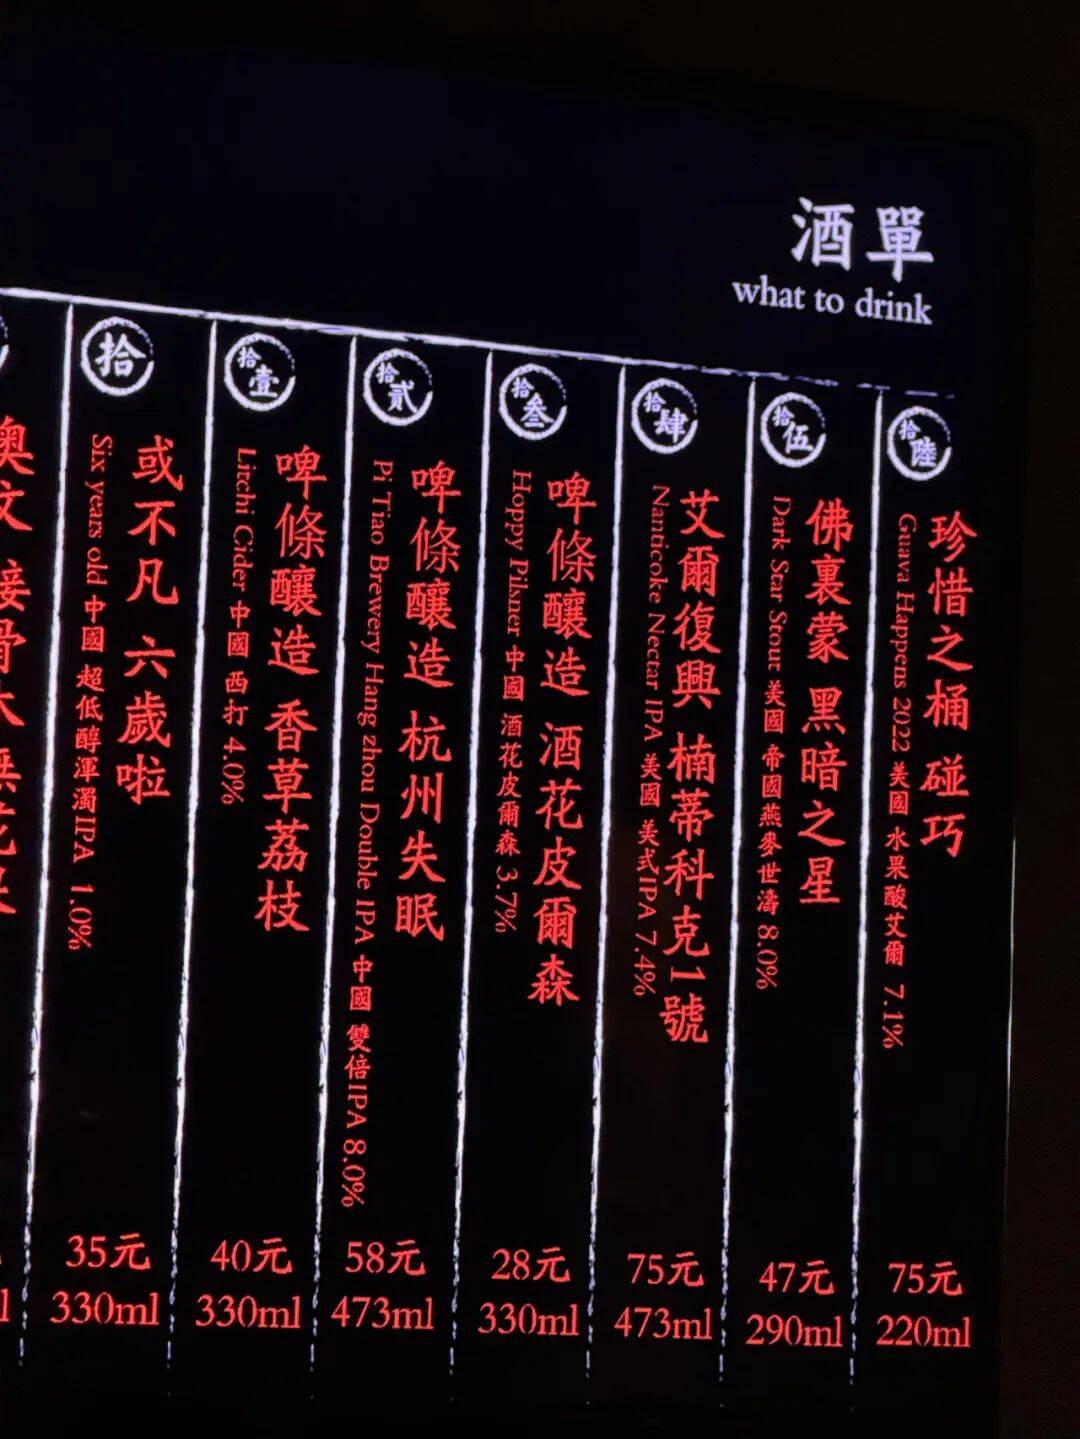 酒單
what to drink
拾陸
珍惜之桶 碰巧
Guava Happens 2022 美國 水果酸艾爾 7.1%
75元
220ml
拾伍
佛裏蒙 黑暗之星
Dark Star Stout 美國 帝國燕麥世濤 8.0%
47元
290ml
拾肆
艾爾復興 楠蒂科克1號
Nanticoke Nectar IPA 美國 美式IPA 7.4%
75元
473ml
拾叁
啤條釀造 酒花皮爾森
Hoppy Pilsner 中國 酒花皮爾森 3.7%
28元
330ml
拾貳
啤條釀造 杭州失眠
Pi Tiao Brewery Hang zhou Double IPA 中國 雙倍IPA 8.0%
58元
473ml
拾壹
啤條釀造 香草荔枝
Litchi Cider 中國 西打 4.0%
40元
330ml
拾
或不凡 六歲啦
Six years old 中國 超低醇渾濁IPA 1.0%
35元
330ml